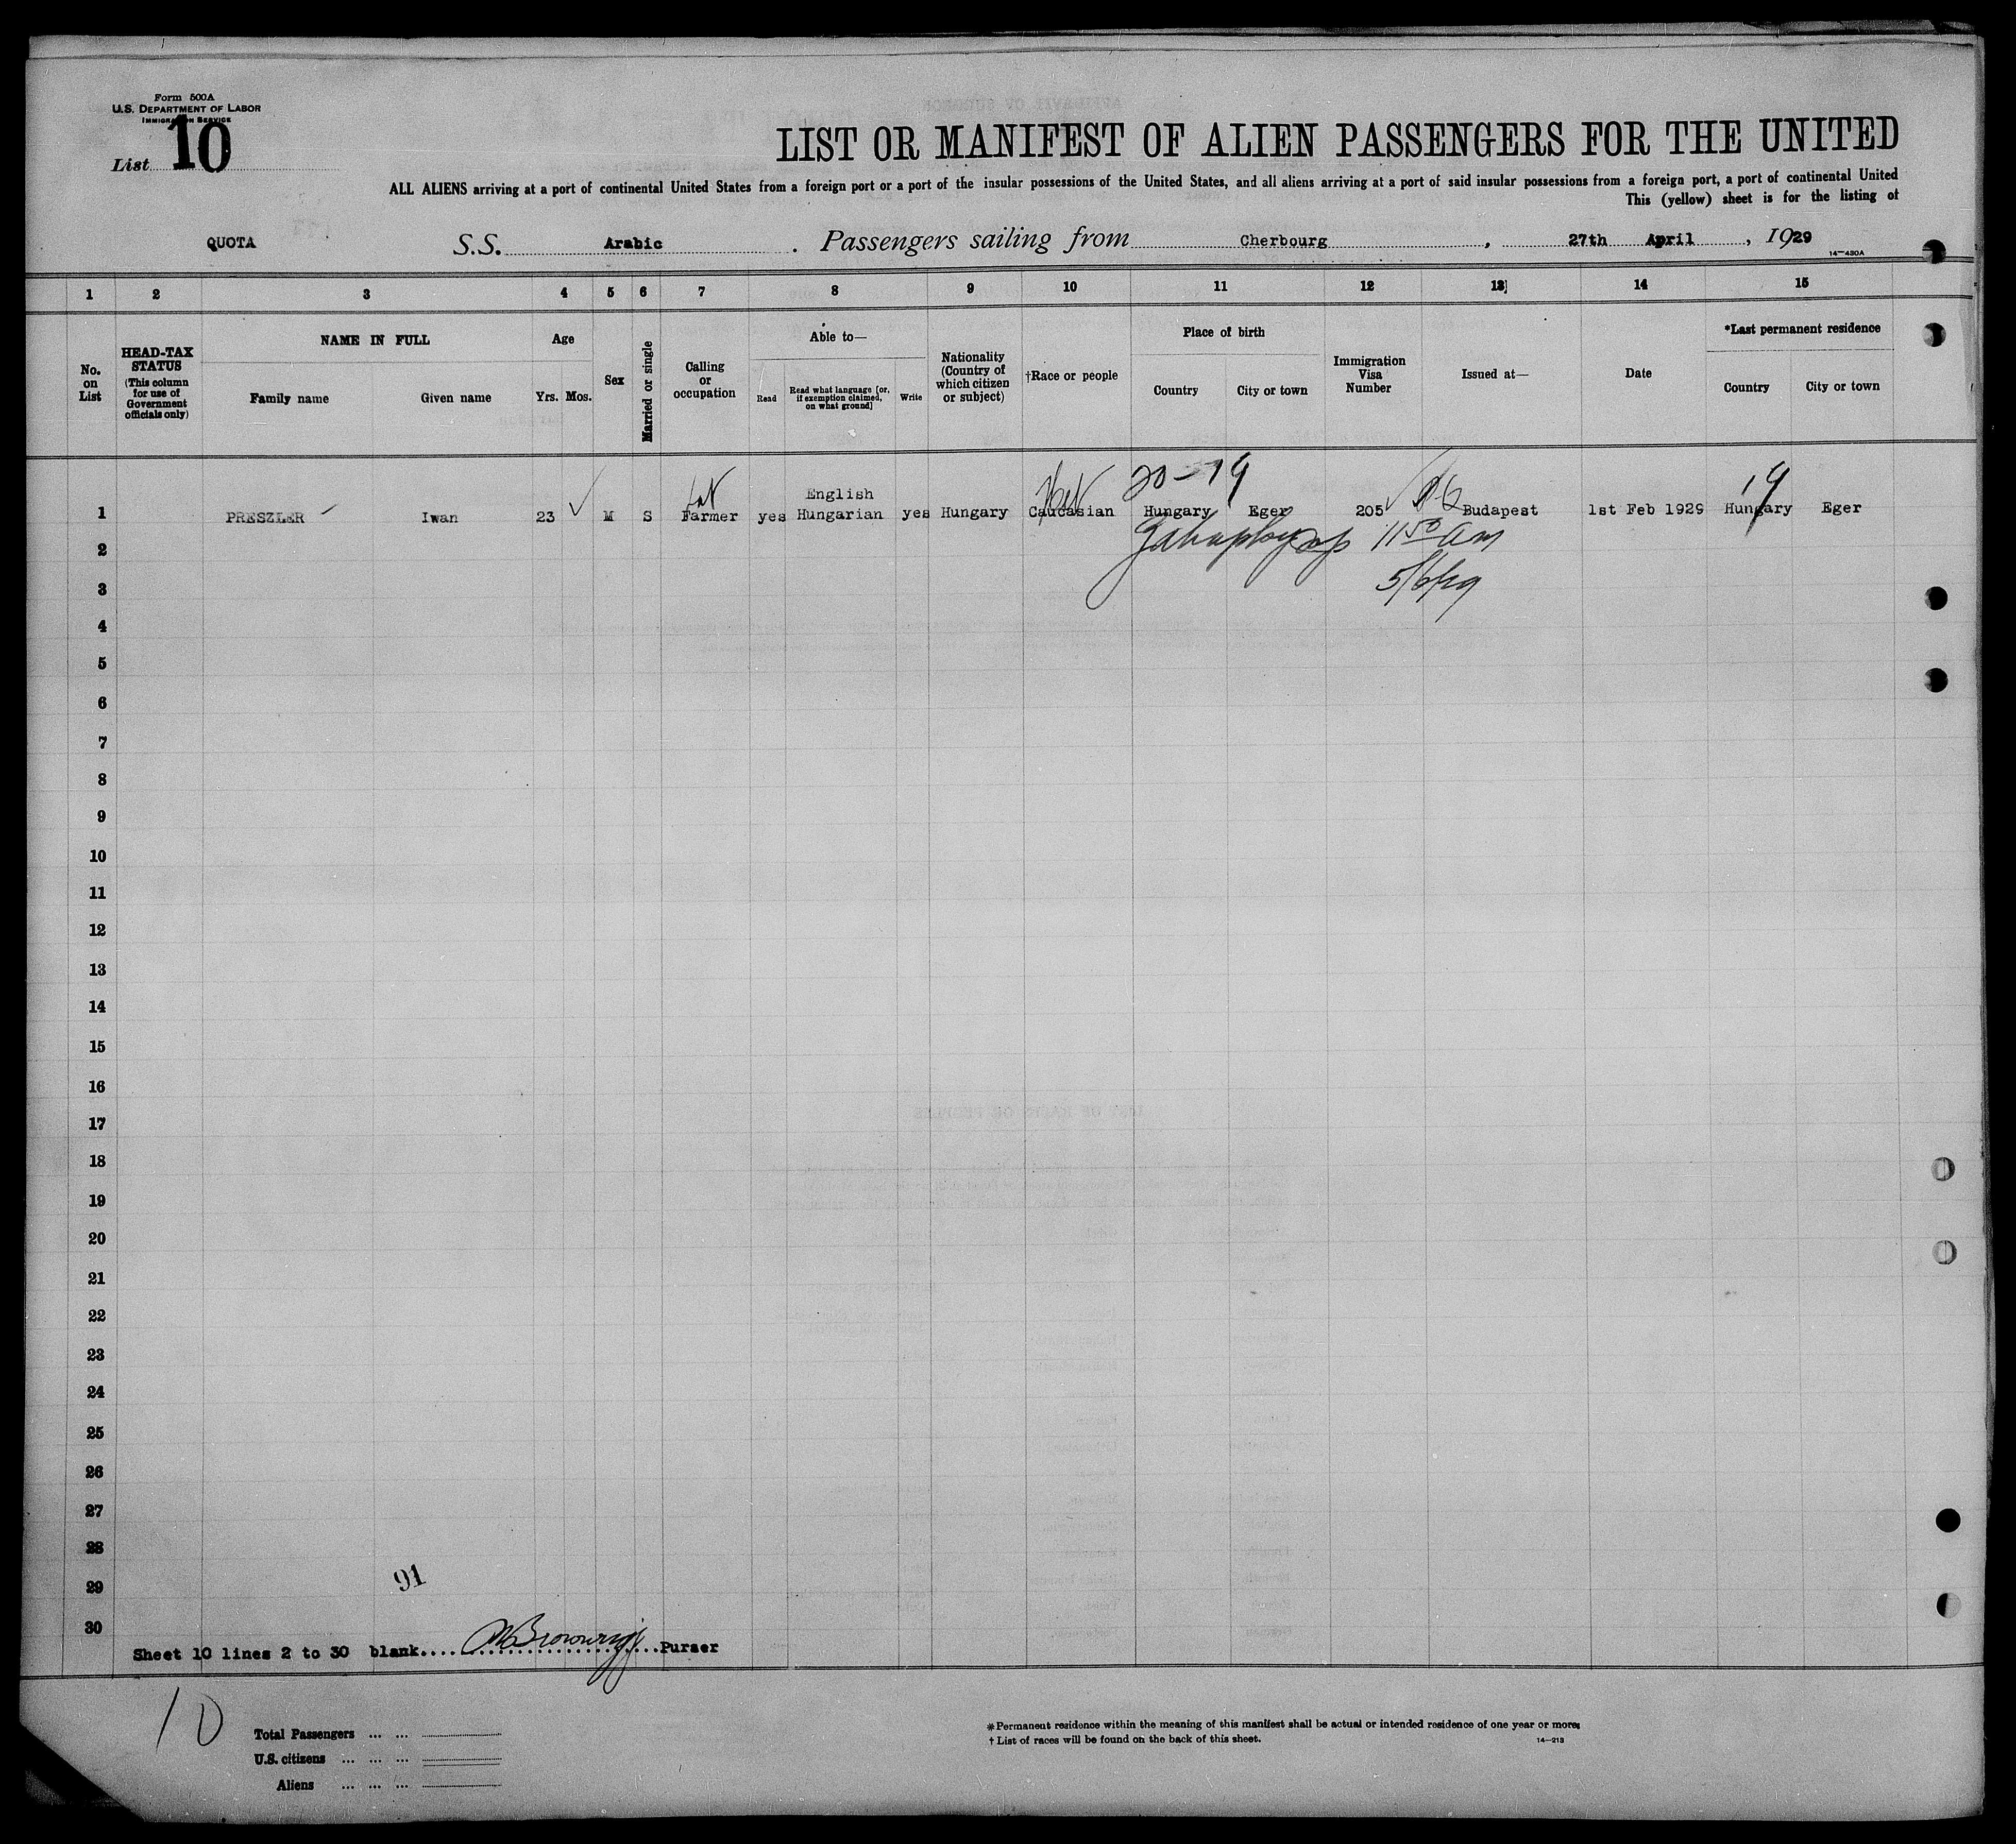 Form 500A
U.S. DEPARTMENT OF LABOR
IMMIGRATION SERVICE
List 10
LIST OR MANIFEST OF ALIEN PASSENGERS FOR THE UNITED
ALL ALIENS arriving at a port of continental United States from a foreign port or a port of the insular possessions of the United States, and all aliens arriving at a port of said insular possessions from a foreign port, a port of continental United
This (yellow) sheet is for the listing of
QUOTA S.S. Arabic . Passengers sailing from Cherbourg , 27th April , 1929
14—430A
1 2 3 4 5 6 7 8 9 10 11 12 13 14 15
No. on List
HEAD-TAX STATUS (This column for use of Government officials only)
NAME IN FULL
Family name Given name
Age
Yrs. Mos.
Sex
Married or single
Calling or occupation
Able to—
Read Read what language [or, if exemption claimed, on what ground] Write
Nationality (Country of which citizen or subject)
†Race or people
Place of birth
Country City or town
Immigration Visa Number
Issued at—
Date
*Last permanent residence
Country City or town
20-19 19
English
1 PRESZLER Iwan 23 M S Farmer yes Hungarian yes Hungary Caucasian Hungary Eger 205 Budapest 1st Feb 1929 Hungary Eger
2 11 50 am
3 5/6/29
4
5
6
7
8
9
10
11
12
13
14
15
16
17
18
19
20
21
22
23
24
25
26
27
28
29 91
30
Sheet 10 lines 2 to 30 blank.........................Purser
10
Total Passengers ... ...
U.S. citizens ... ... ...
Aliens ... ... ...
*Permanent residence within the meaning of this manifest shall be actual or intended residence of one year or more.
† List of races will be found on the back of this sheet. 14—213